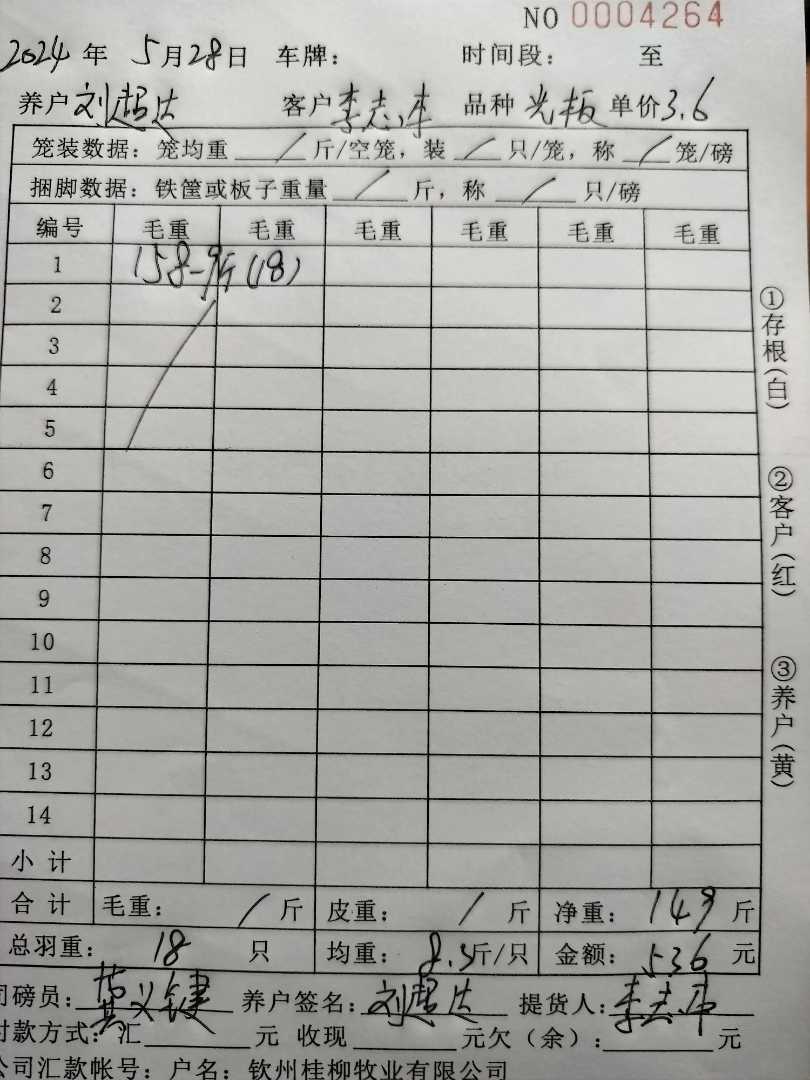 NO 0004264
2024 年 5 月 28 日 车牌： 时间段： 至
养户 刘超达 客户 李志伟 品种 光板 单价 3.6
笼装数据：笼均重 / 斤/空笼，装 / 只/笼，称 / 笼/磅
捆脚数据：铁筐或板子重量 / 斤，称 / 只/磅
编号 毛重 毛重 毛重 毛重 毛重 毛重
1 158-9斤(18)
2
3
4
5
6
7
8
9
10
11
12
13
14
小 计
合 计 毛重： / 斤 皮重： / 斤 净重： 149 斤
总羽重： 18 只 均重： 8.3 斤/只 金额： 536 元
司磅员： 黄义键 养户签名： 刘超达 提货人： 李志伟
付款方式：汇 元 收现 元欠（余）： 元
公司汇款帐号：户名：钦州桂柳牧业有限公司
①存根（白）
②客户（红）
③养户（黄）